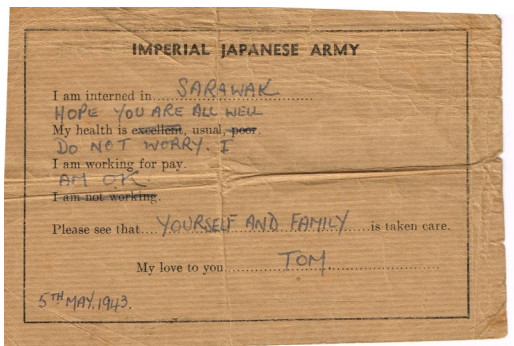 IMPERIAL JAPANESE ARMY
I am interned in SARAWAK
HOPE YOU ARE ALL WELL
My health is excellent, usual, poor.
DO NOT WORRY. I
I am working for pay.
AM OK.
I am not working.
Please see that YOURSELF AND FAMILY is taken care.
My love to you TOM
5TH MAY. 1943.